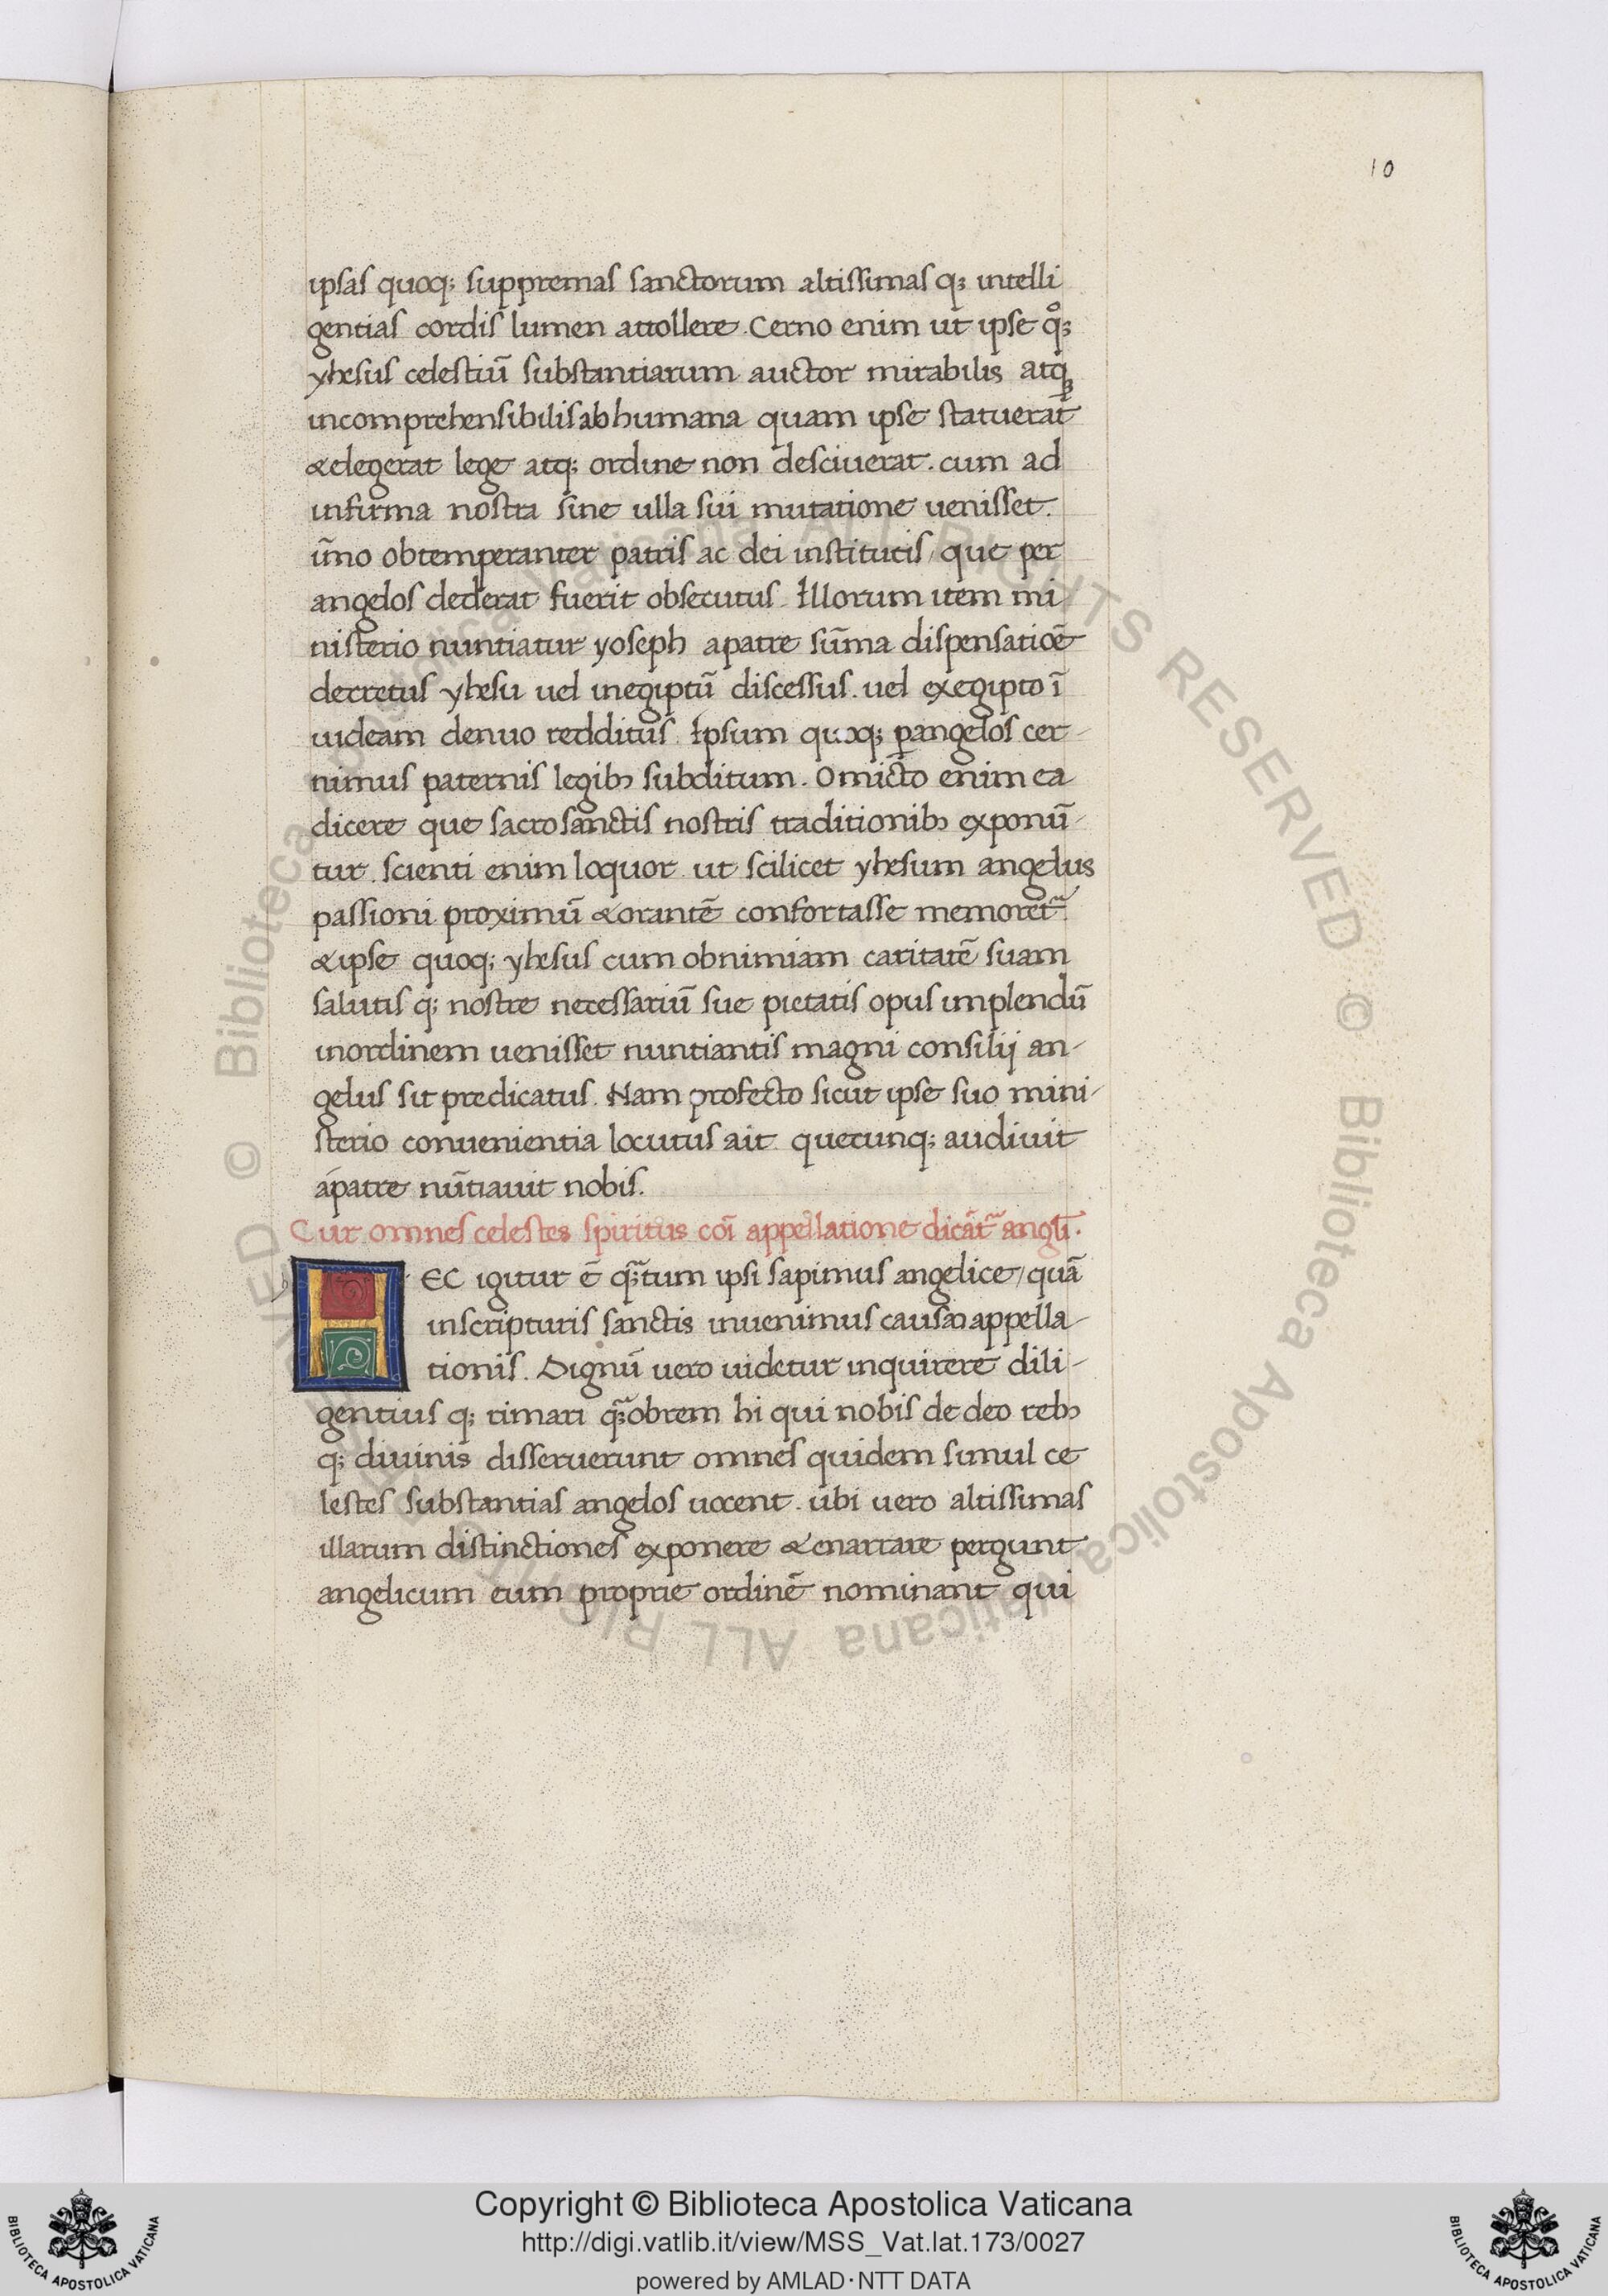 10
ipsas quoq; suppremas sanctorum altissimas q; intelli
gentias cordis lumen attollere. Cerno enim ut ipse qͦ;
yhesus celestiū substantiarum auctor mirabilis atq;
incomprehensibilis ab humana quam ipse statuerat
& elegerat lege atq; ordine non desciuerat. cum ad
infirma nostra sine ulla sui mutatione uenisset.
īmo obtemperanter patris ac dei institutis / que per
angelos dederat fuerit obsecutus. Illorum item mi
nisterio nuntiatur yoseph a patre sūma dispensatiōe
decretus yhesu uel in egiptū discessus. uel ex egipto ī
iudeam denuo redditus. Ipsum quoq; ꝑ angelos cer-
nimus paternis legibꝫ subditum. Omicto enim ea
dicere que sacrosanctis nostris traditionibꝫ exponū-
tur. scienti enim loquor ut scilicet yhesum angelus
passioni proximū & orantē confortasse memoret᷑
& ipse quoq; yhesus cum ob nimiam caritatē suam
salutis q; nostre necessariū sue pietatis opus implendū
in ordinem uenisset nuntiantis magni consilij an-
gelus sit predicatus. Nam profecto sicut ipse suo mini-
sterio conuenientia locutus ait quecunq; audiuit
a patre nūtiauit nobis.
Cur omnes celestes spiritus coī appellatione dicāt᷑ angłi.
HEC igitur ē qꝫ̄tum ipsi sapimus angelice / quā
in scripturis sanctis inuenimus causam appella-
tionis. Dignū uero uidetur inquirere dili-
gentius q; rimari qꝫ̄obrem hi qui nobis de deo rebꝫ
q; diuinis disseruerunt omnes quidem simul ce
lestes substantias angelos uocent. ubi uero altissimas
illarum distinctiones exponere & enarrare pergunt
angelicum eum proprie ordinē nominant qui
© Biblioteca Apostolica Vaticana ALL RIGHTS RESERVED © Biblioteca Apostolica Vaticana ALL RIGHTS RESERVED
Copyright © Biblioteca Apostolica Vaticana
http://digi.vatlib.it/view/MSS_Vat.lat.173/0027
powered by AMLAD·NTT DATA
BIBLIOTECA APOSTOLICA VATICANA
BIBLIOTECA APOSTOLICA VATICANA